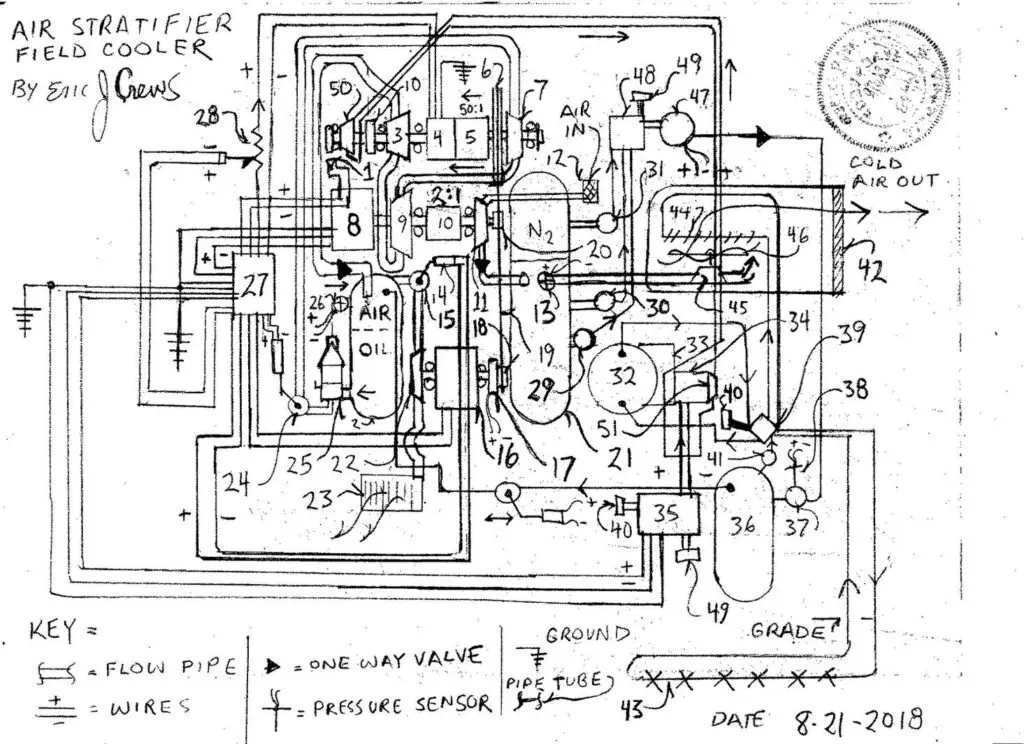 AIR STRATIFIER
FIELD COOLER
BY ERIC J CREWS
28
+
-
50
10
6
7
48
49
47
50:1
AIR
IN
12
31
COLD
AIR OUT
1
3
4
5
8
2:1
9
10
N2
20
44
46
42
27
26
AIR
OIL
14
15
11
13
30
45
18
19
33
34
39
32
29
40
38
51
41
24
25
22
16
17
21
23
35
36
37
40
49
KEY =
= FLOW PIPE
= WIRES
= ONE WAY VALVE
= PRESSURE SENSOR
GROUND
PIPE TUBE
GRADE
43
DATE 8-21-2018